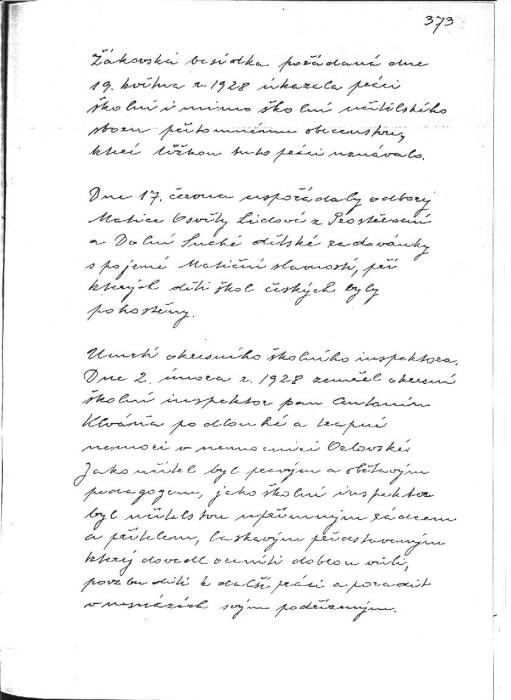 373
Žákovská besídka pořádaná dne
19. května r. 1928 ukázala práci
školní i mimo školní učitelského
sboru přítomnému obecenstvu,
které těžkou tuto práci uznávalo.
Dne 17. června uspořádaly odbory
Matice Osvěty Lidové z Prostřední
a Dolní Suché dětské radovánky
spojené Matiční slavností, při
kterých děti škol českých byly
pohostěny.
Úmrtí okresního školního inspektora.
Dne 2. února r. 1928 zemřel okresní
školní inspektor pan Antonín
Klváňa po dlouhé a trapné
nemoci v nemocnici Orlovské.
Jako učitel byl pravým a obětavým
pedagogem, jako školní inspektor
byl učitelstvu upřímným rádcem
a přítelem, laskavým představeným
který dovedl oceniti dobrou vůli,
povzbuditi k další práci a poradit
v nesnázích svým podřízeným.